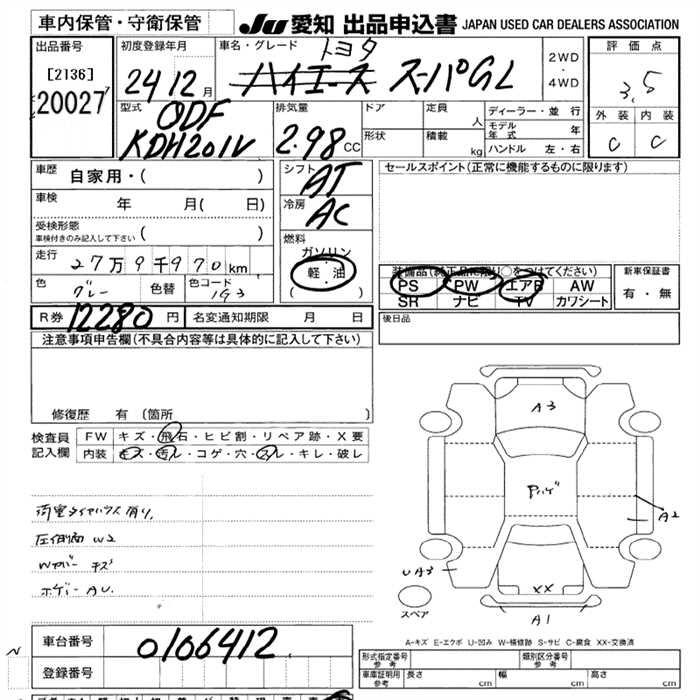 車内保管・守衛保管 JU 愛知 出品申込書 JAPAN USED CAR DEALERS ASSOCIATION
出品番号 初度登録年月 車名・グレード トヨタ 2WD ・ 4WD 評価点
[2136] 24 12 月 ハイエース スーパGL 3.5
20027 型式 排気量 ドア 定員 人 ディーラー・並行
QDF モデル年式 年 外装 内装
KDH201V 2.98 CC 形状 積載 kg ハンドル 左・右 C C
車歴 自家用・( ) シフト AT セールスポイント(正常に機能するものに限ります)
車検 年 月( 日) 冷房 AC
受検形態 ( )
車検付きのみ記入して下さい
燃料
走行 27万9千970km ガソリン
軽・油 装備品(純正品に限り○をつけてください) 新車保証書
色 グレー 色替 色コード 1G3 ( ) PS PW エアB AW 有・無
SR ナビ TV カワシート
R券 12280 円 名変通知期限 月 日 後日品
注意事項申告欄(不具合内容等は具体的に記入して下さい)
修復歴 有 (箇所 )
A3
検査員 FW キズ・飛石・ヒビ割・リペア跡・X要 cm cm
記入欄 内装 キズ・汚レ・コゲ・穴・スレ・キレ・破レ
Pハゲ
荷室タイヤハウス有り
A2
圧側面 W2
Wカバー キズ
cm cm
UA3
ボデー AU.
XX
スペア
A1
車台番号 0106412
A-キズ E-エクボ U-凹み W-補修跡 S-サビ C-腐食 XX-交換済
登録番号
形式指定番号 参考 類別区分番号 参考
車庫証明用 参考 長さ cm 幅 cm 高さ cm